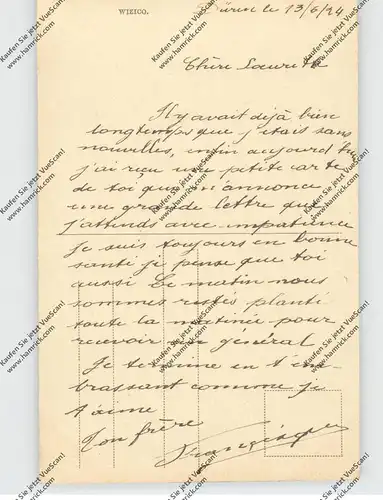 WIEICO.
Düren le 13/6/24
Chère Laurette
Il y avait déjà bien
longtemps que j'étais sans
nouvelles, enfin aujourd'hui
j'ai reçu une petite carte
de toi qui m'annonce
une grande lettre que
j'attends avec impatience
je suis toujours en bonne
santé je pense que toi
aussi Ce matin nous
sommes restés planté
toute la matinée pour
recevoir un général
Je termine en t'em-
brassant comme je
t'aime
Ton frère
Kaufen Sie jetzt VueScan!
www.hamrick.com